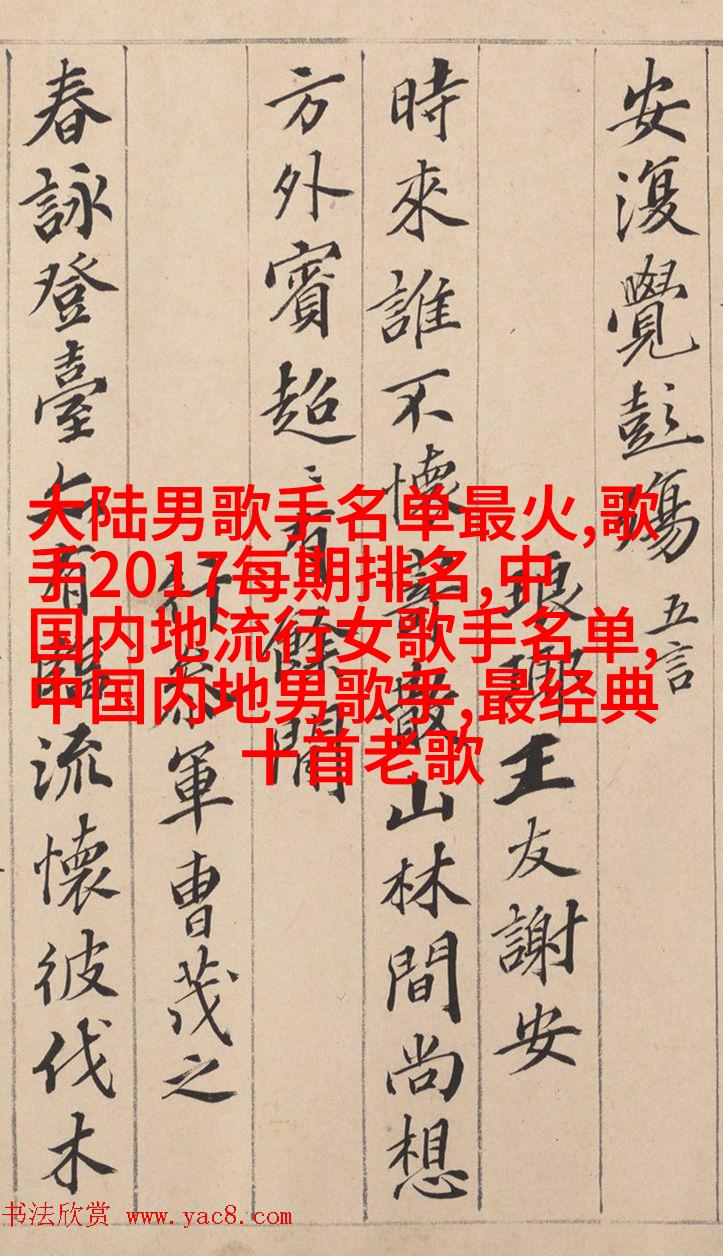 安復覺彭殤 五言
琅瑘王友謝安
時來誰不懷寄散山林間尚想
方外賓超〻有餘閒
行參軍曹茂之
春詠登臺亦有臨流懷彼伐木
大陆男歌手名单最火,歌
手2017每期排名,中
国内地流行女歌手名单,
中国内地男歌手,最经典
十首老歌
书法欣赏 www.yac8.com